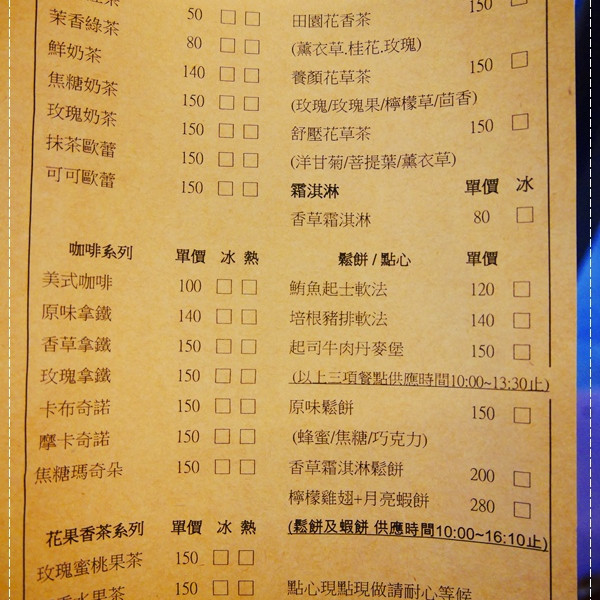 茉香綠茶 50 □ □
鮮奶茶 80 □ □
焦糖奶茶 140 □ □
玫瑰奶茶 150 □ □
抹茶歐蕾 150 □ □
可可歐蕾 150 □ □
150 □ □
咖啡系列 單價 冰 熱
美式咖啡 100 □ □
原味拿鐵 140 □ □
香草拿鐵 150 □ □
玫瑰拿鐵 150 □ □
卡布奇諾 150 □ □
摩卡奇諾 150 □ □
焦糖瑪奇朵 150 □ □
花果香茶系列 單價 冰 熱
玫瑰蜜桃果茶 150 □ □
水果茶 150 □ □
田園花香茶 150 □
(薰衣草.桂花.玫瑰)
養顏花草茶 150 □
(玫瑰/玫瑰果/檸檬草/茴香)
舒壓花草茶 150 □
(洋甘菊/菩提葉/薰衣草)
霜淇淋 單價 冰
香草霜淇淋 80 □
鬆餅 / 點心 單價
鮪魚起士軟法 120 □
培根豬排軟法 140 □
起司牛肉丹麥堡 150 □
(以上三項餐點供應時間10:00~13:30止)
原味鬆餅 150 □
(蜂蜜/焦糖/巧克力)
香草霜淇淋鬆餅 200 □
檸檬雞翅+月亮蝦餅 280 □
(鬆餅及蝦餅 供應時間10:00~16:10止)
點心現點現做請耐心等候